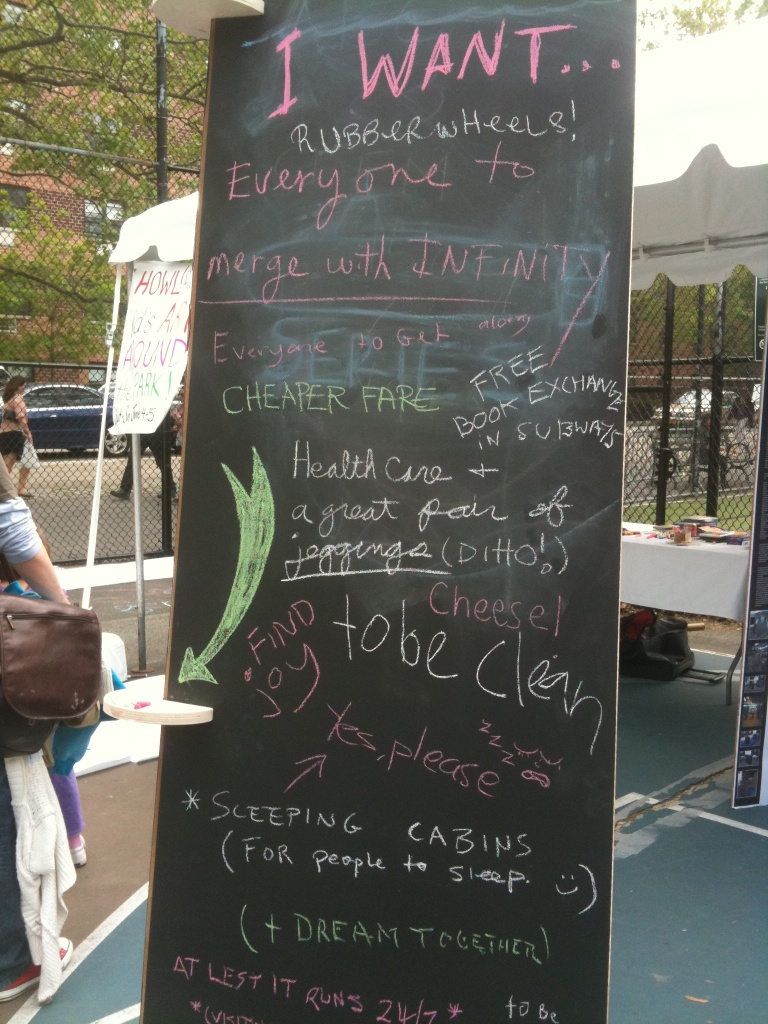 I WANT...
RUBBER WHEELS!
Everyone to
merge with INFINITY
Everyone to Get along
CHEAPER FARE
FREE
BOOK EXCHANGE
IN SUBWAYS
Health Care +
a great pair of
jeggings (DITTO!)
Cheese!
FIND
JOY
to be clean
Yes, please
zzzz
* SLEEPING CABINS
(FOR people to sleep. :)
(+ DREAM TOGETHER)
AT LEST IT RUNS 24/7 *
to Be
*(VISIT
HOWL
AROUND
PARK!